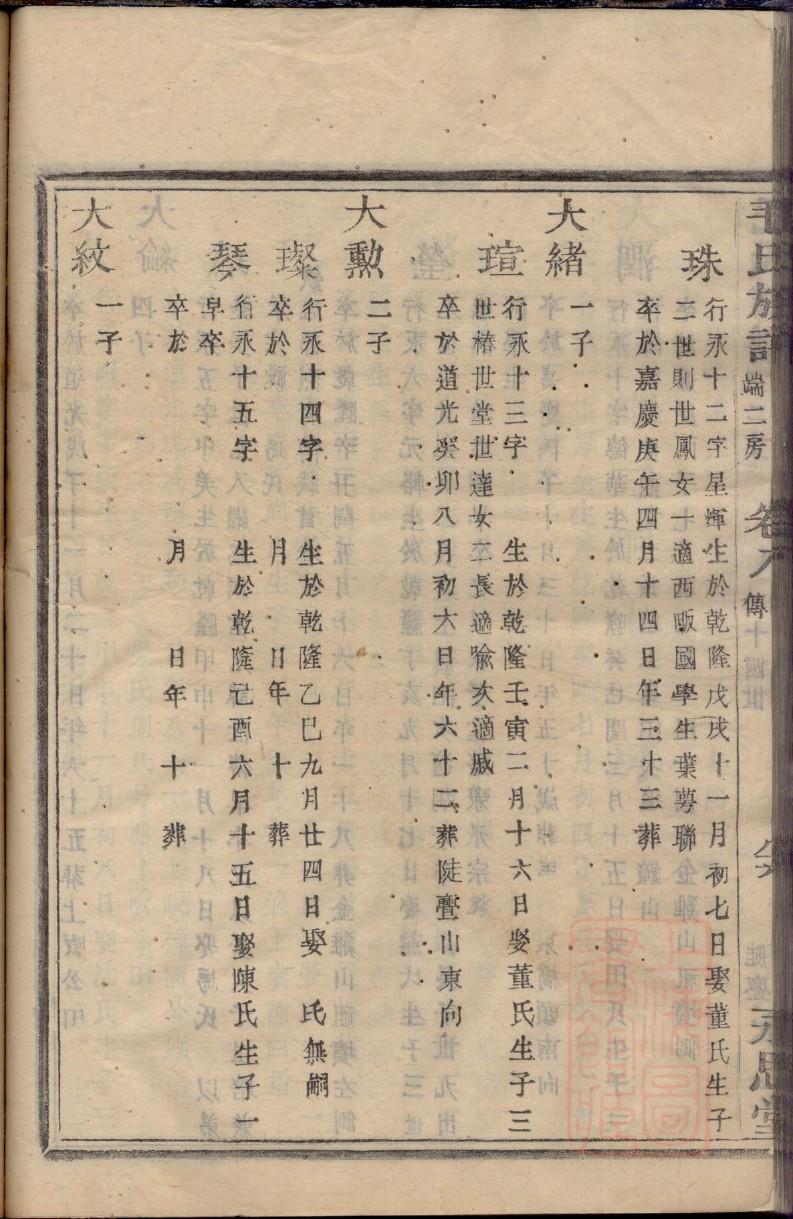 毛氏族譜 端二房 卷 傳十四世 永思堂
珠 行永十二字星輝生於乾隆戊戌十一月初七日娶董氏生子
二世則世鳳女七適西畈國學生葉蕚聯
卒於嘉慶庚午四月十四日年三十三葬
大緒 一子
瑄 行永十三字 生於乾隆壬寅二月十六日娶董氏生子三
世椿世堂世達女二長適喻次適戚
卒於道光癸卯八月初六日年六十二葬陡亹山東向
大勲 二子
璨 行永十四字 生於乾隆乙巳九月廿四日娶 氏無嗣
卒於 月 日年 十 葬
琴 行永十五字 生於乾隆己酉六月十五日娶陳氏生子一
早卒
卒於 月 日年 十 葬
大紋 一子